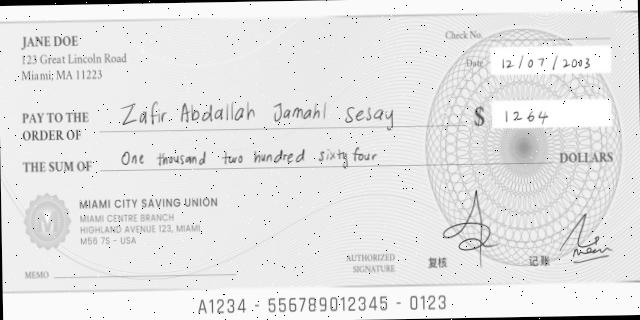 JANE DOE
123 Great Lincoln Road
Miami; MA 11223
Check No.
Date 12/07/2003
PAY TO THE ORDER OF Zafir Abdallah Jamahl Sesay $ 1264
THE SUM OF One thousand two hundred sixty four DOLLARS
M
MIAMI CITY SAVING UNION
MIAMI CENTRE BRANCH
HIGHLAND AVENUE 123, MIAMI,
M56 7S - USA
MEMO
AUTHORIZED SIGNATURE
复核
记账
A1234 - 556789012345 - 0123